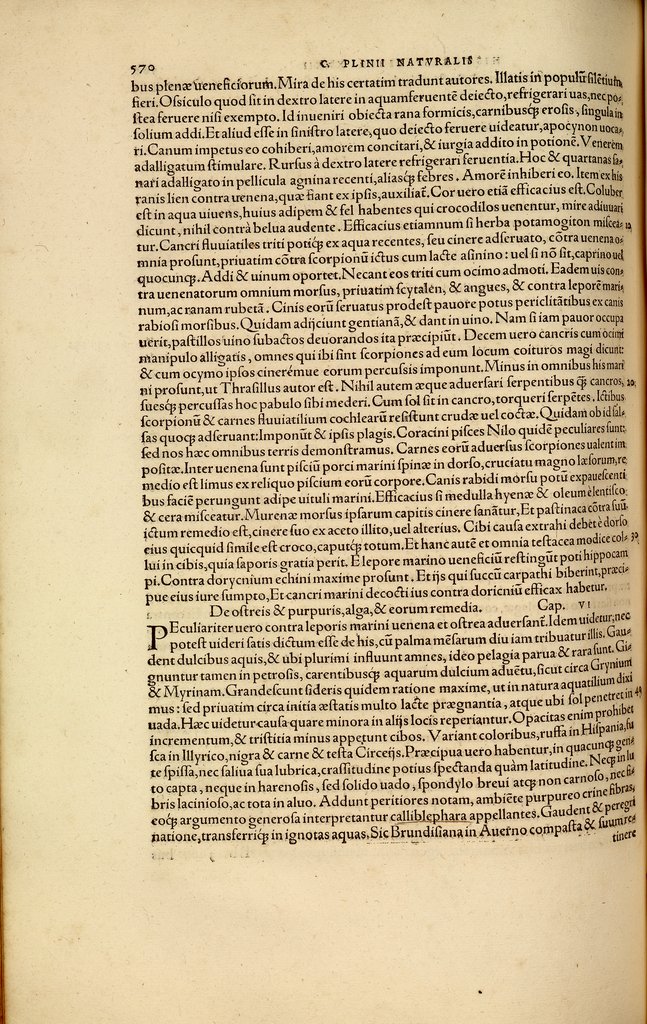 570
C. PLINII NATVRALIS
bus plenæ ueneficiorum. Mira de his certatim tradunt autores. Illatis in populũ silẽtium
fieri. Ossiculo quod sit in dextro latere in aquam feruentẽ deiecto, refrigerari uas, nec po-
stea feruere nisi exempto. Id inueniri obiecta rana formicis, carnibusq; erosis, singula in
solium addi. Et aliud esse in sinistro latere, quo deiecto feruere uideatur, apocynon uoca-
ri. Canum impetus eo cohiberi, amorem concitari, & iurgia addito in potionẽ. Venerem
adalligatum stimulare. Rursus à dextro latere refrigerari feruentia. Hoc & quartanas sa-
nari adalligato in pellicula agnina recenti, aliasq; febres. Amorẽ inhiberi eo. Item ex his
ranis lien contra uenena, quæ fiant ex ipsis, auxiliat̃. Cor uero etiã efficacius est. Coluber
est in aqua uiuens, huius adipem & fel habentes qui crocodilos uenentur, mire adiuuari
dicunt, nihil contrà belua audente. Efficacius etiamnum si herba potamogiton miscea- 10
tur. Cancri fluuiatiles triti potiq; ex aqua recentes, seu cinere adseruato, cõtra uenena o-
mnia prosunt, priuatim cõtra scorpionũ ictus cum lacte asinino: uel si nõ sit, caprino uel
quocunq;. Addi & uinum oportet. Necant eos triti cum ocimo admoti. Eadem uis con-
tra uenenatorum omnium morsus, priuatim scytalen, & angues, & contra leporẽ mari-
num, ac ranam rubetã. Cinis eorũ seruatus prodest pauore potus periclitãtibus ex canis
rabiosi morsibus. Quidam adijciunt gentianã, & dant in uino. Nam si iam pauor occupa
uerit, pastillos uino subactos deuorandos ita præcipiũt. Decem uero cancris cum ocimi
manipulo alligatis, omnes qui ibi sint scorpiones ad eum locum coituros magi dicunt:
& cum ocymo ipsos cineremue eorum percussis imponunt. Minus in omnibus his mari
ni prosunt, ut Thrasillus autor est. Nihil autem æque aduersari serpentibus q̃ cancros, 20
suesq; percussas hoc pabulo sibi mederi. Cum sol sit in cancro, torqueri serpẽtes. Ictibus
scorpionũ & carnes fluuiatilium cochlearũ resistunt crudæ uel coctæ. Quidam ob id sal-
sas quoq; adseruant: Imponũt & ipsis plagis. Coracini pisces Nilo quidẽ peculiares sunt:
sed nos hæc omnibus terris demonstramus. Carnes eorũ aduersus scorpiones ualent im
positæ. Inter uenena sunt pisciũ porci marini spinæ in dorso, cruciatu magno læsorum, re
medio est limus ex reliquo piscium eorũ corpore. Canis rabidi morsu potũ expauescenti
bus faciẽ perungunt adipe uituli marini. Efficacius si medulla hyenæ & oleum è lentisco
& cera misceatur. Murenæ morsus ipsarum capitis cinere sanãtur, Et pastinaca cõtra suũ
ictum remedio est, cinere suo ex aceto illito, uel alterius. Cibi causa extrahi debet è dorso
eius quicquid simile est croco, caputq; totum. Et hanc autẽ et omnia testacea modice col- 30
lui in cibis, quia saporis gratia perit. E lepore marino ueneficiũ restingũt poti hippocam
pi. Contra dorycnium echini maxime prosunt. Et ijs qui succũ carpathi biberint, præci-
pue eius iure sumpto, Et cancri marini decocti ius contra doricniũ efficax habetur.
De ostreis & purpuris, alga, & eorum remedia. Cap. VI
PEculiariter uero contra leporis marini uenena et ostrea aduersant̃. Idem uidetur, nec
potest uideri satis dictum esse de his, cũ palma mẽsarum diu iam tribuatur illis. Gau-
dent dulcibus aquis, & ubi plurimi influunt amnes, ideo pelagia parua & rara sunt. Gi-
gnuntur tamen in petrosis, carentibusq; aquarum dulcium aduẽtu, sicut circa Grynium
& Myrinam. Grandescunt sideris quidem ratione maxime, ut in natura aquatilium dixi
mus: sed priuatim circa initia æstatis multo lacte prægnantia, atque ubi sol penetret in 40
uada. Hæc uidetur causa quare minora in alijs locis reperiantur. Opacitas enim prohibet
incrementum, & tristitia minus appetunt cibos. Variant coloribus, ruffa in Hispania, fu
sca in Illyrico, nigra & carne & testa Circeijs. Præcipua uero habentur, in quacunq; gen-
te spissa, nec saliua sua lubrica, crassitudine potius spectanda quàm latitudine. Neq; in lu
to capta, neque in harenosis, sed solido uado, spondylo breui atq; non carnoso, nec fi-
bris lacinioso, ac tota in aluo. Addunt peritiores notam, ambiẽte purpureo crine fibras,
eoq; argumento generosa interpretantur calliblephara appellantes. Gaudent & peregri
natione, transferriq; in ignotas aquas. Sic Brundisiana in Auerno compasta & suum re-
tinere